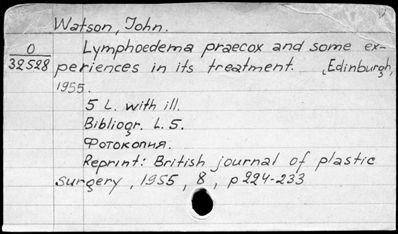 Watson, John.
O Lymphoedema praecox and some ex-
32528 periences in its treatment. [Edinburgh,
1955.
5 L. with ill.
Bibliogr. L. 5.
Фотокопия.
Reprint: British journal of plastic
surgery, 1955, 8, p 224-233